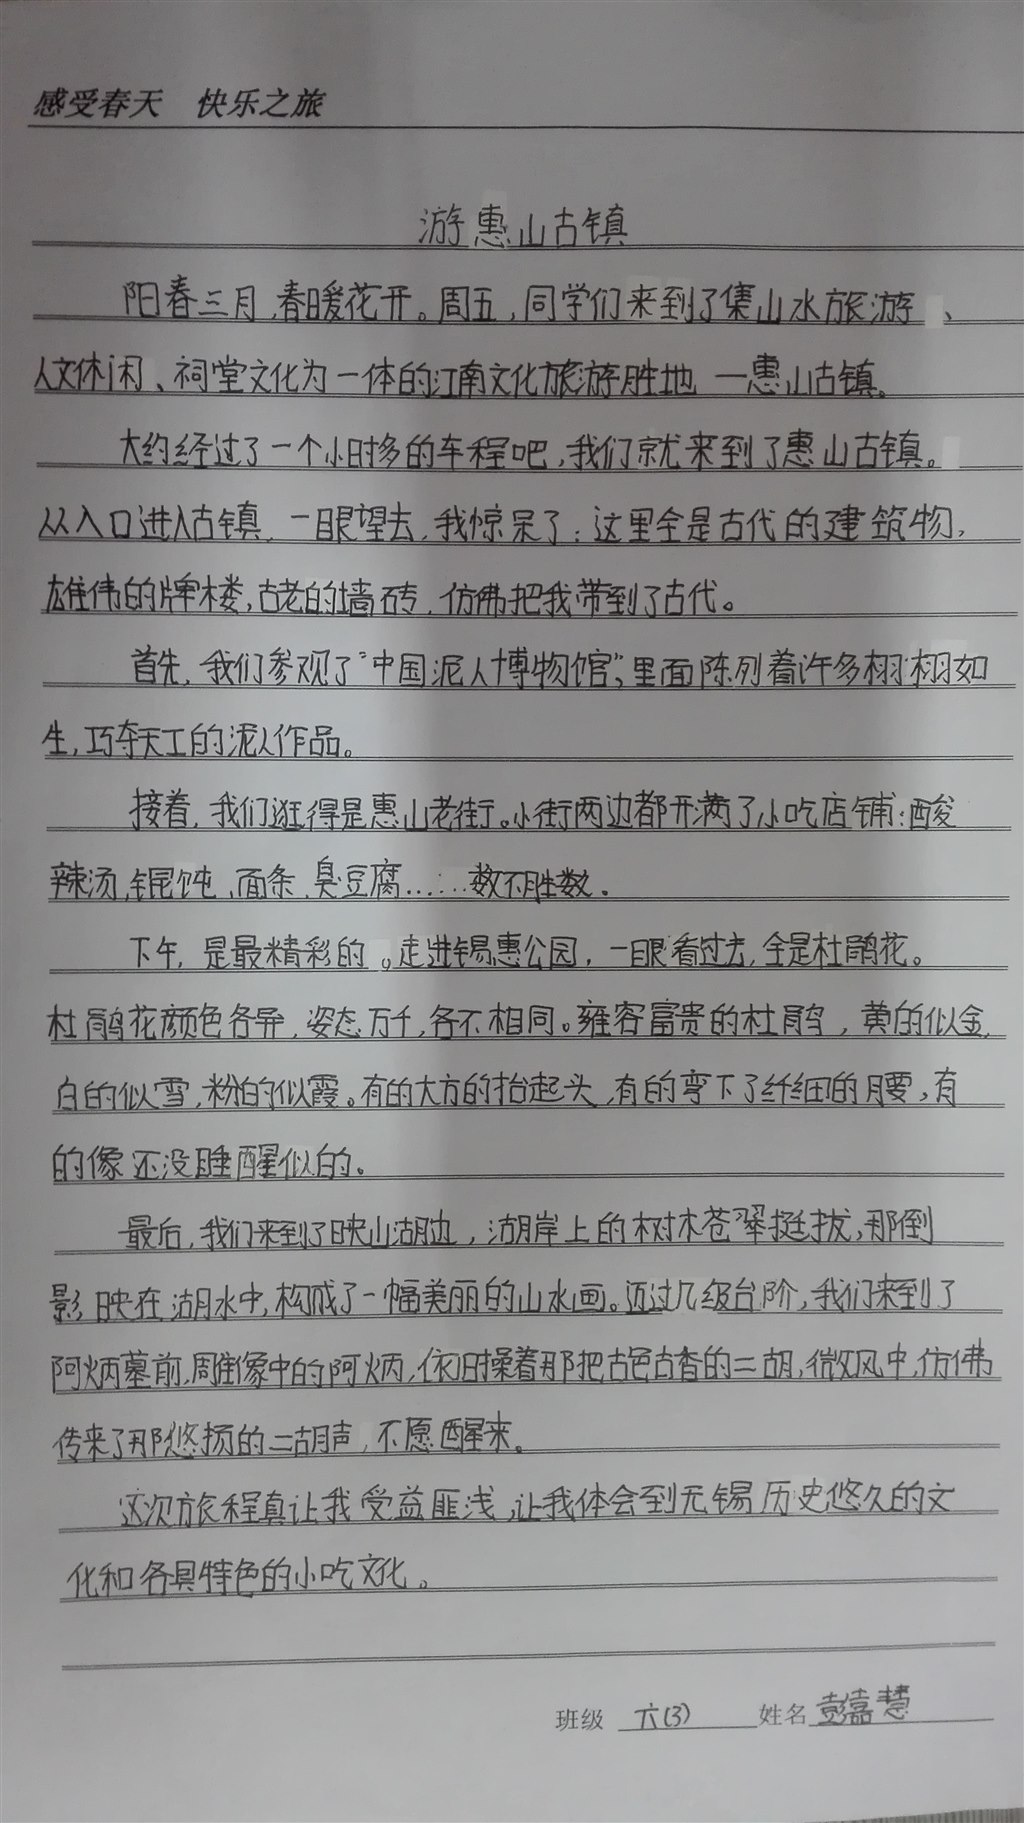 感受春天 快乐之旅
游惠山古镇
阳春三月,春暖花开。周五,同学们来到了集山水旅游、
人文休闲、祠堂文化为一体的江南文化旅游胜地 一惠山古镇。
大约经过了一个小时多的车程吧,我们就来到了惠山古镇。
从入口进入古镇,一眼望去,我惊呆了:这里全是古代的建筑物,
雄伟的牌楼,古老的墙砖,仿佛把我带到了古代。
首先,我们参观了“中国泥人博物馆”,里面陈列着许多栩栩如
生,巧夺天工的泥人作品。
接着,我们逛得是惠山老街。小街两边都开满了小吃店铺:酸
辣汤,馄饨、面条、臭豆腐……数不胜数。
下午,是最精彩的。走进锡惠公园,一眼看过去,全是杜鹃花。
杜鹃花颜色各异,姿态万千,各不相同。雍容富贵的杜鹃,黄的似金,
白的似雪,粉的似霞。有的大方的抬起头,有的弯下了纤细的腰,有
的像还没睡醒似的。
最后,我们来到了映山湖边,湖岸上的树木苍翠挺拔,那倒
影映在湖水中,构成了一幅美丽的山水画。迈过几级台阶,我们来到了
阿炳墓前,雕像中的阿炳,依旧操着那把古色古香的二胡,微风中,仿佛
传来了那悠扬的二胡声,不愿醒来。
这次旅程真让我受益匪浅,让我体会到无锡历史悠久的文
化和各具特色的小吃文化。
班级 六(3) 姓名 彭嘉慧